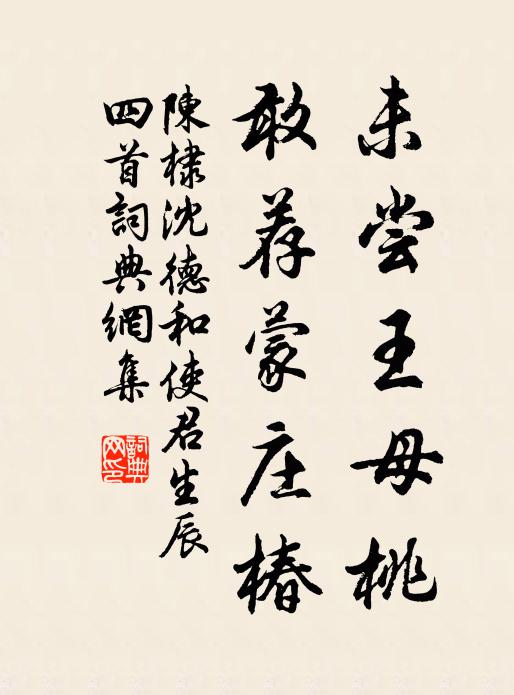 未尝王母桃
敢荐蒙庄椿
陳棣沈德和使君生辰
四首詞典網集
詞典網印